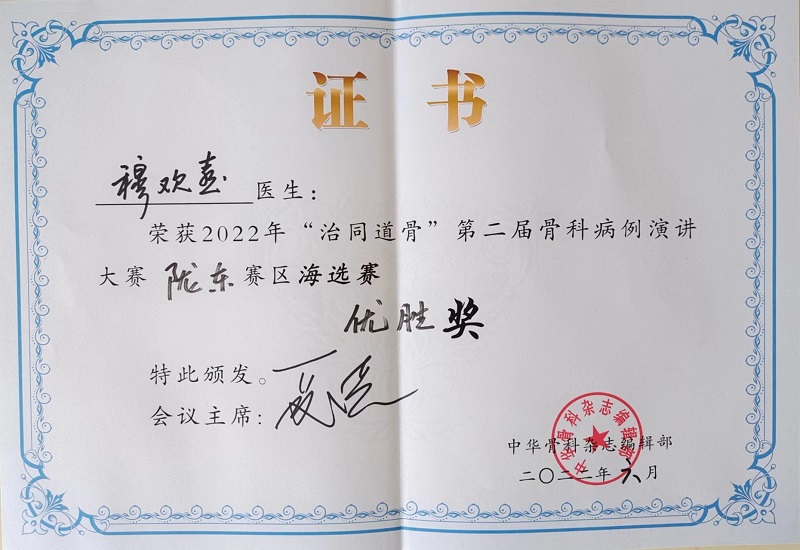 证书
穆欢喜 医生：
荣获2022年“治同道骨”第二届骨科病例演讲
大赛 陇东 赛区海选赛
优胜奖
特此颁发。
会议主席：
中华骨科杂志编辑部
中华骨科杂志编辑部
二〇二二年 六月